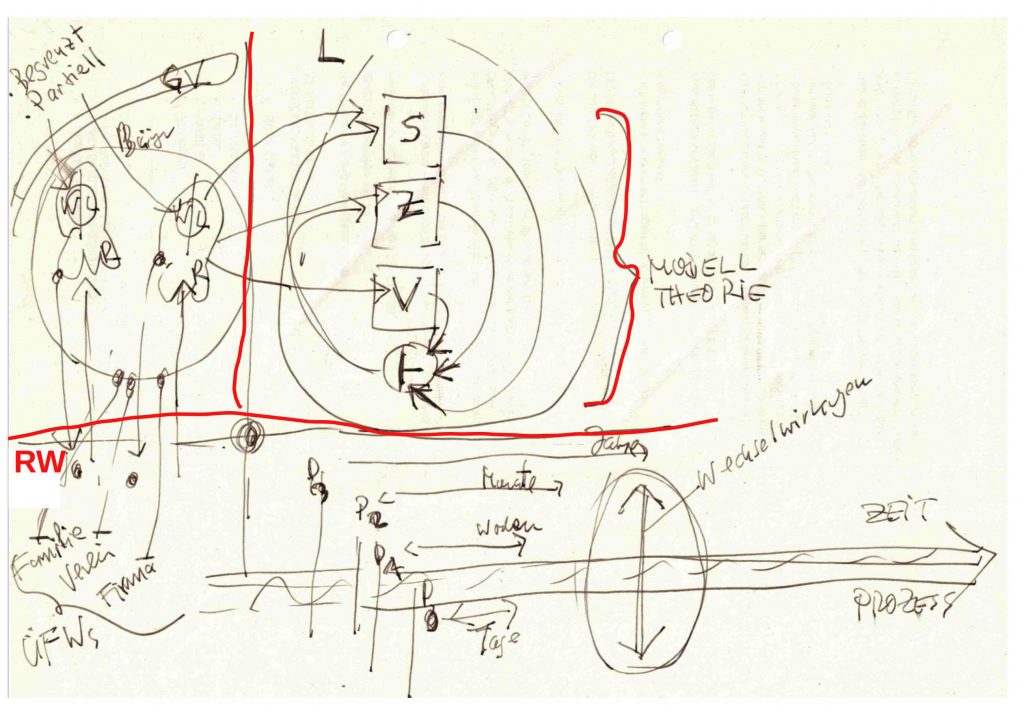 Begrenzt
Partiell
GV
L
Bürger
WL
WL
R
R
S
Z
V
MODELL
THEORIE
RW
Jahre
Monate
Wochen
Tage
P3
P2
P1
P0
Wechselwirkungen
ZEIT
PROZESS
Familie
Verein
Firma
ÜFWs